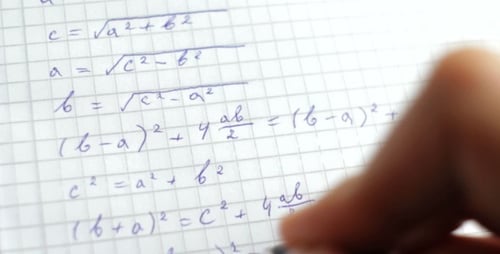 c = √(a² + b²)
a = √(c² - b²)
b = √(c² - a²)
(b - a)² + 4 ab/2 = (b - a)² +
c² = a² + b²
(b + a)² = c² + 4 ab